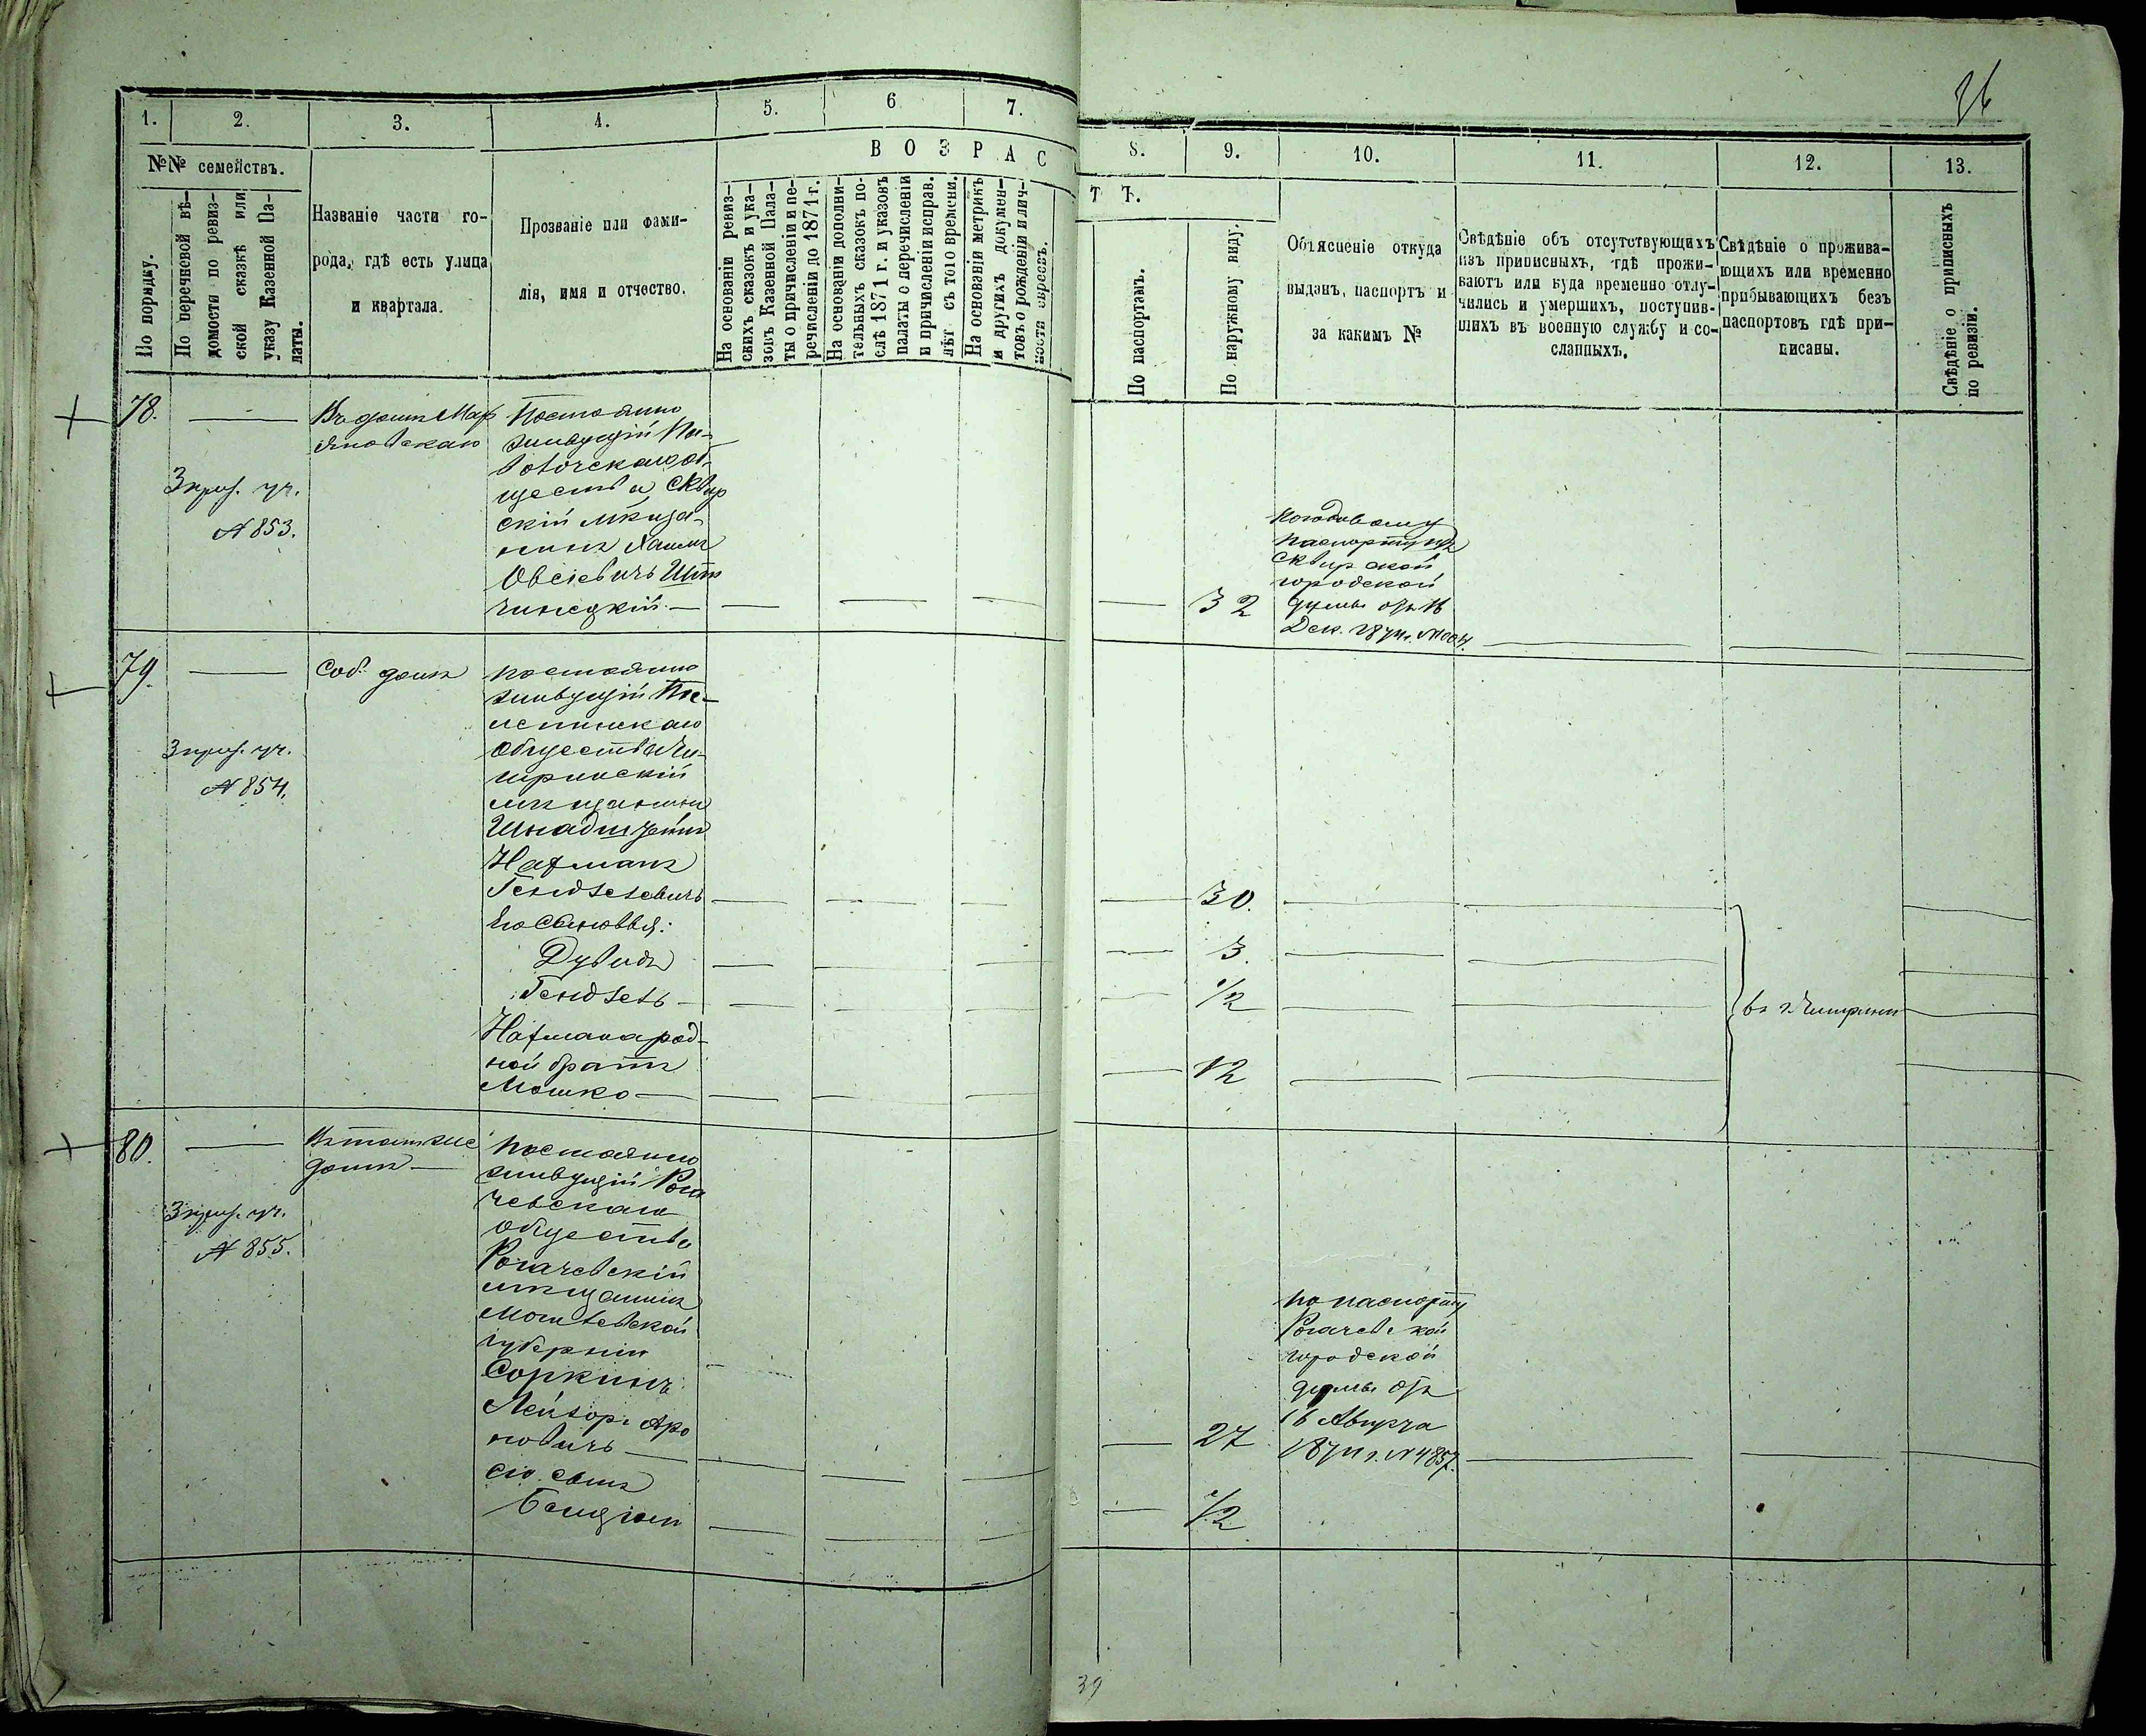 36
1.
2.
3.
4.
5.
6
7.
8.
9.
10.
11.
12.
13.
№№ семействъ.
По порядку.
По перечневой вѣ-
домости по ревиз-
ской сказкѣ или
указу Казенной Па-
латы.
Названіе части го-
рода, гдѣ есть улица
и квартала.
Прозваніе или фами-
лія, имя и отчество.
ВОЗРАС
Т Ъ.
На основаніи ревиз-
скихъ сказокъ и ука-
зовъ Казенной Пала-
ты о причисленіи и пе-
речисленіи до 1871 г.
На основаніи дополни-
тельныхъ сказокъ по-
слѣ 1871 г. и указовъ
палаты о перечисленіи
и причисленіи исправ.
лѣт съ того времени.
На основаніи метрикъ
и другихъ докумен-
товъ о рожденіи и лич-
ности евреевъ.
По паспортамъ.
По наружному виду.
Объясненіе откуда
выданъ, паспортъ и
за какимъ №
Свѣдѣніе объ отсутствующихъ
изъ приписныхъ, гдѣ прожи-
ваютъ или куда временно отлу-
чились и умершихъ, поступив-
шихъ въ военную службу и со-
сланныхъ.
Свѣдѣніе о прожива-
ющихъ или временно
прибывающихъ безъ
паспортовъ гдѣ при-
писаны.
Свѣдѣніе о приписныхъ
по ревизіи.
78.
3 приз. уч.
№ 853.
Въ домѣ
Постоянно
живущій
общества, Сквир
скій мѣща-
нинъ Хаимъ
Овсіевичъ
чинецкій
32
погодовому
паспорту изъ
Сквирской
городской
думы отъ 16
Дек.
79.
3 приз. уч.
№ 854.
Соб. домъ
постоянно
живущій
общества Чи-
гиринскій
мѣщанинъ
Нафманъ
Гендзелевичъ
30.
Его сыновья:
Дувидъ
3.
Гендзель
1/2
Нафмана род-
ной братъ
Мошко
12
въ г. Чигринѣ
80.
3 приз. уч.
№ 855.
Въ томъ же
домѣ
постоянно
живущій Рога
чевскаго
общества
Рогачевскій
мѣщанинъ
Могилевской
губерніи
Соркинъ
Лейзоръ Аро
новичъ
27
по паспорту
Рогачевской
городской
думы отъ
16 Августа
187 г. № 4857.
его сынъ
Бенціонъ
1/2
39